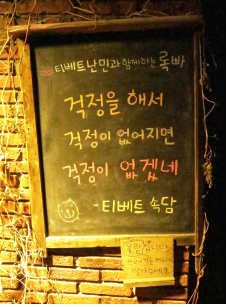 티베트난민과 함께하는 록빠
걱정을 해서
걱정이 없어지면
걱정이 없겠네
-티베트 속담